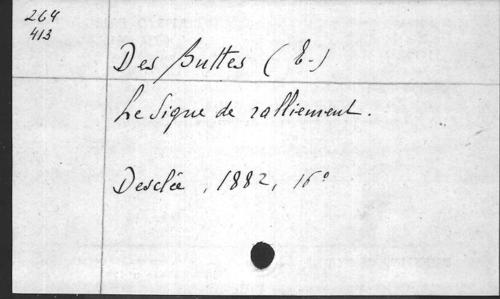 264
413
Des Buttes (E.)
Le Signe de ralliement.
Desclée, 1882, 16°